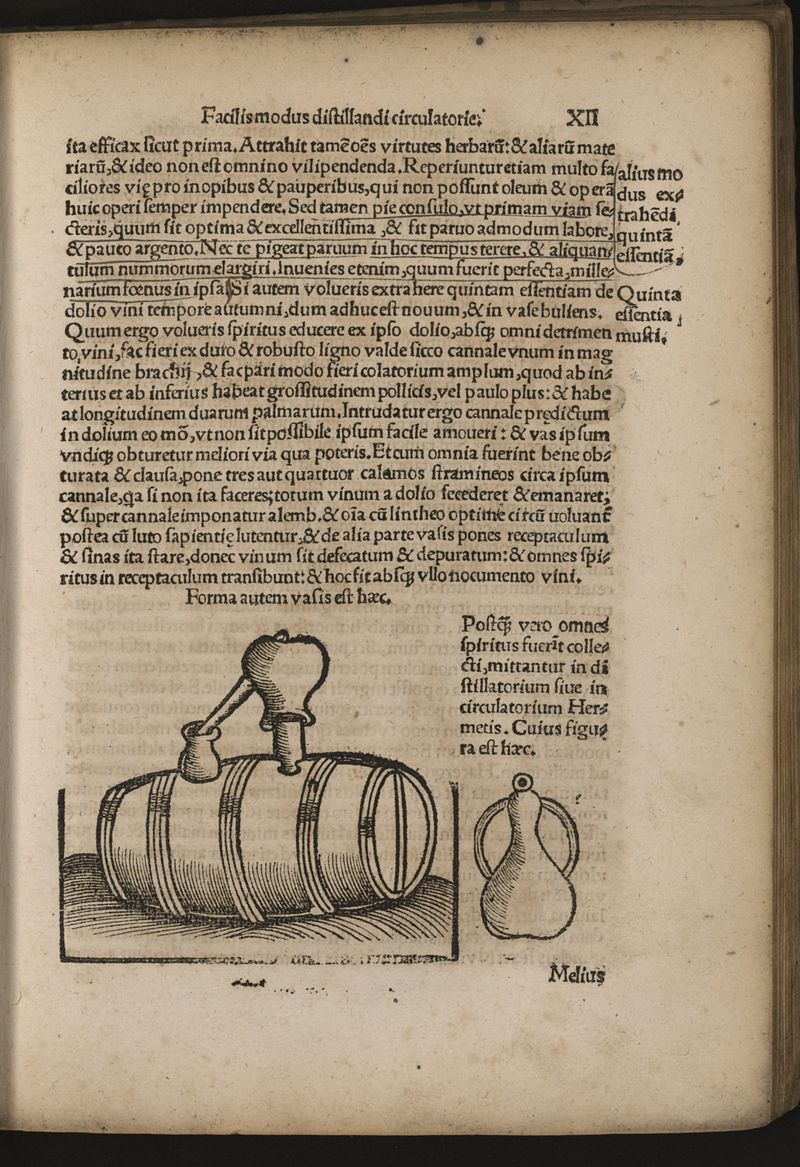 Facilis modus distillandi circulatorie. XII
ita efficax sicut prima. Attrahit tamẽ oẽs virtutes herbarũ: & aliarũ mate
riarũ, & ideo non est omnino vilipendenda. Reperiuntur etiam multo fa/
ciliores vię pro inopibus & pauperibus, qui non possunt oleum & operã
huic operi semper impendere. Sed tamen pie consulo, vt primam viam se⸗
cteris, quum sit optima & excellentissima, & fit paruo admodum labore,
& pauco argento. Nec te pigeat paruum in hoc tempus terere, & aliquan⸗
tulum nummorum elargiri. Inuenies etenim, quum fuerit perfecta, mille⸗
narium fœnus in ipsa. Si autem volueris extrahere quintam essentiam de
dolio vini tempore autumni, dum adhuc est nouum, & in vase buliens.
Quum ergo volueris spiritus educere ex ipso dolio, absq; omni detrimen
to, vini, fac fieri ex duro & robusto ligno valde sicco cannale vnum in mag
nitudine brachij, & fac pari modo fieri colatorium amplum, quod ab in⸗
terius et ab inferius habeat grossitudinem pollicis, vel paulo plus: & habe
at longitudinem duarum palmarum. Intrudatur ergo cannale prędictum
in dolium eo mõ, vt non sit possibile ipsum facile amoueri: & vas ipsum
vndiq; obturetur meliori via qua poteris. Et cum omnia fuerint bene ob⸗
turata & clausa, pone tres aut quattuor calamos stramineos circa ipsum
cannale, ꝗa si non ita faceres; totum vinum a dolio secederet & emanaret;
& super cannale imponatur alemb. & oĩa cũ lintheo optime circũ uoluant̃
postea cũ luto sapientię lutentur, & de alia parte vasis pones receptaculum
& sinas ita stare, donec vinum sit defecatum & depuratum: & omnes spi⸗
ritus in receptaculum transibunt: & hoc fit absq; vllo nocumento vini.
Forma autem vasis est hæc.
alius mo
dus ex⸗
trahẽdi
quintã
essentiã.
Quinta
essentia
musti.
Postq̃ vero omnes
spiritus fuerĩt colle⸗
cti, mittantur in di
stillatorium siue in
circulatorium Her⸗
metis. Cuius figu⸗
ra est hæc.
Melius